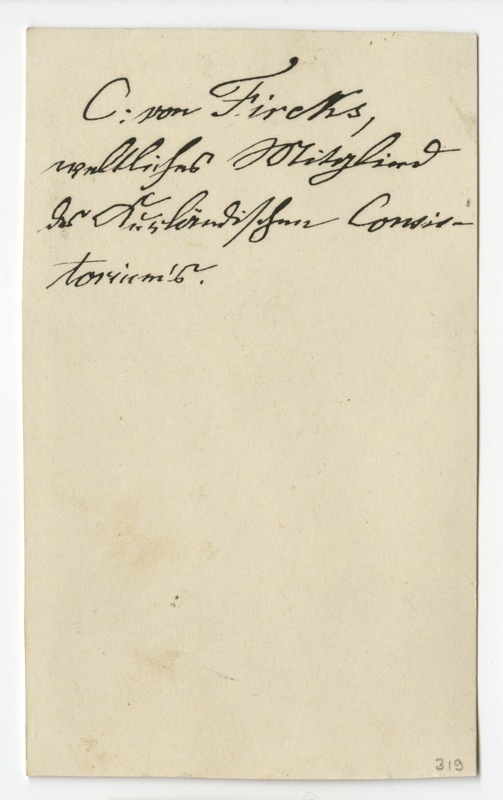 C: von Fircks,
weltliches Mitglied
des Kurländischen Consis-
torium's.
319